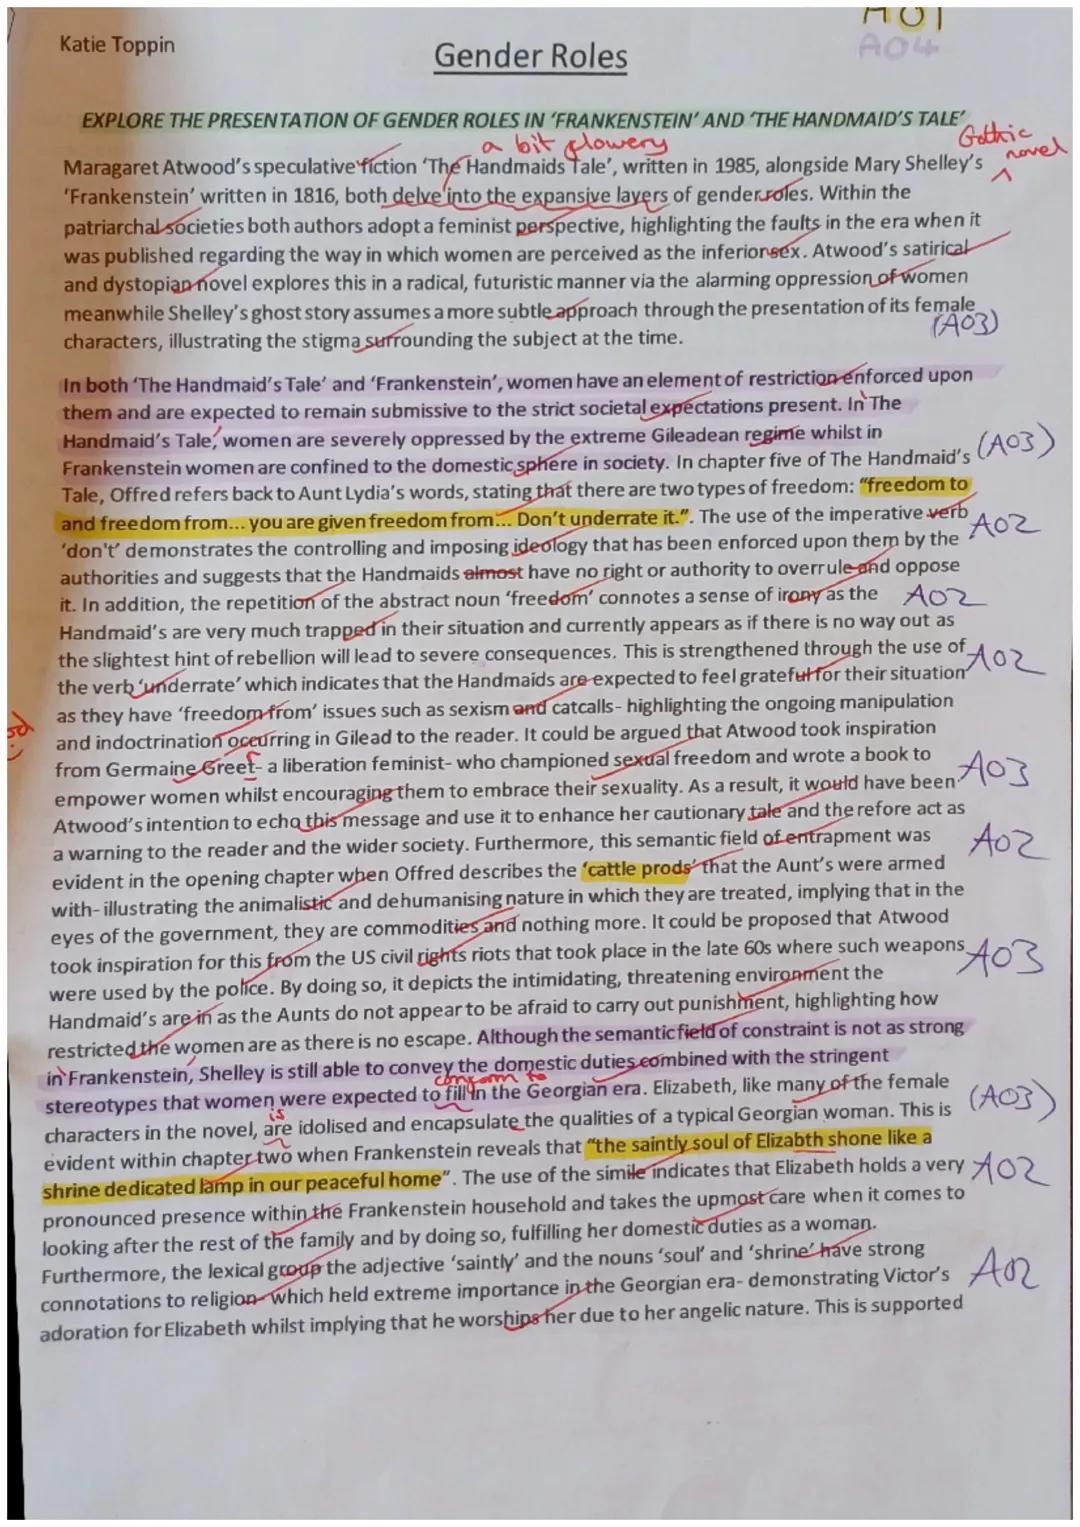 Katie Toppin
A01
A04
Gender Roles
EXPLORE THE PRESENTATION OF GENDER ROLES IN 'FRANKENSTEIN' AND 'THE HANDMAID'S TALE'
a bit flowery
Gothic novel
Maragaret Atwood's speculative fiction 'The Handmaids Tale', written in 1985, alongside Mary Shelley's
'Frankenstein' written in 1816, both delve into the expansive layers of gender roles. Within the
patriarchal societies both authors adopt a feminist perspective, highlighting the faults in the era when it
was published regarding the way in which women are perceived as the inferior sex. Atwood's satirical
and dystopian novel explores this in a radical, futuristic manner via the alarming oppression of women
meanwhile Shelley's ghost story assumes a more subtle approach through the presentation of its female
characters, illustrating the stigma surrounding the subject at the time.
(A03)
In both 'The Handmaid's Tale' and 'Frankenstein', women have an element of restriction enforced upon
them and are expected to remain submissive to the strict societal expectations present. In 'The
Handmaid's Tale,' women are severely oppressed by the extreme Gileadean regime whilst in
Frankenstein women are confined to the domestic sphere in society. In chapter five of The Handmaid's (A03)
Tale, Offred refers back to Aunt Lydia's words, stating that there are two types of freedom: "freedom to
and freedom from... you are given freedom from... Don't underrate it.". The use of the imperative verb A02
'don't' demonstrates the controlling and imposing ideology that has been enforced upon them by the
authorities and suggests that the Handmaids almost have no right or authority to overrule and oppose
it. In addition, the repetition of the abstract noun 'freedom' connotes a sense of irony as the A02
Handmaid's are very much trapped in their situation and currently appears as if there is no way out as
the slightest hint of rebellion will lead to severe consequences. This is strengthened through the use of A02
the verb 'underrate' which indicates that the Handmaids are expected to feel grateful for their situation
as they have 'freedom from' issues such as sexism and catcalls- highlighting the ongoing manipulation
and indoctrination occurring in Gilead to the reader. It could be argued that Atwood took inspiration
from Germaine Greet- a liberation feminist- who championed sexual freedom and wrote a book to
r
empower women whilst encouraging them to embrace their sexuality. As a result, it would have been A03
Atwood's intention to echo this message and use it to enhance her cautionary tale and therefore act as
a warning to the reader and the wider society. Furthermore, this semantic field of entrapment was A02
evident in the opening chapter when Offred describes the 'cattle prods' that the Aunt's were armed
with- illustrating the animalistic and dehumanising nature in which they are treated, implying that in the
eyes of the government, they are commodities and nothing more. It could be proposed that Atwood
took inspiration for this from the US civil rights riots that took place in the late 60s where such weapons A03
were used by the police. By doing so, it depicts the intimidating, threatening environment the
Handmaid's are in as the Aunts do not appear to be afraid to carry out punishment, highlighting how
restricted the women are as there is no escape. Although the semantic field of constraint is not as strong
in 'Frankenstein,' Shelley is still able to convey the domestic duties combined with the stringent
conform to
stereotypes that women were expected to fill in the Georgian era. Elizabeth, like many of the female (A03)
is
characters in the novel, are idolised and encapsulate the qualities of a typical Georgian woman. This is
evident within chapter two when Frankenstein reveals that "the saintly soul of Elizabth shone like a
shrine dedicated lamp in our peaceful home". The use of the simile indicates that Elizabeth holds a very A02
pronounced presence within the Frankenstein household and takes the upmost care when it comes to
looking after the rest of the family and by doing so, fulfilling her domestic duties as a woman.
Furthermore, the lexical group the adjective 'saintly' and the nouns 'soul' and 'shrine' have strong
connotations to religion- which held extreme importance in the Georgian era- demonstrating Victor's A02
adoration for Elizabeth whilst implying that he worships her due to her angelic nature. This is supported